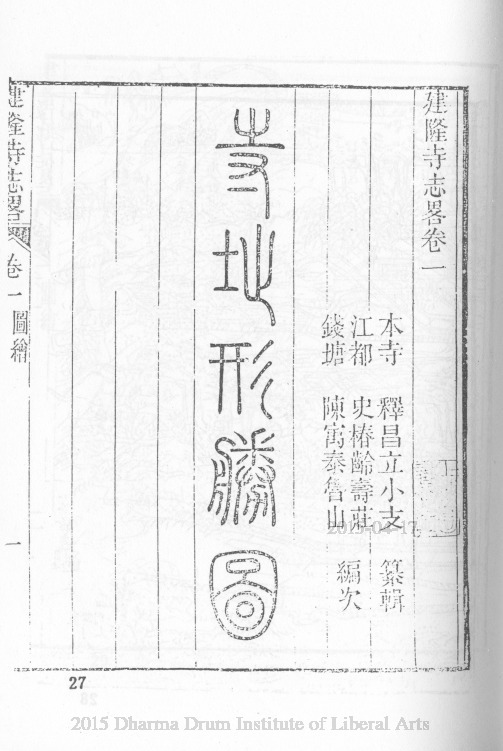 建隆寺志畧卷一
本寺 釋昌立小支 纂輯
江都 史椿齡壽莊
錢塘 陳寓泰魯山 編次
寺地形勝圖
建隆寺志畧 卷一 圖繪 一
2015-04-17
27
2015 Dharma Drum Institute of Liberal Arts